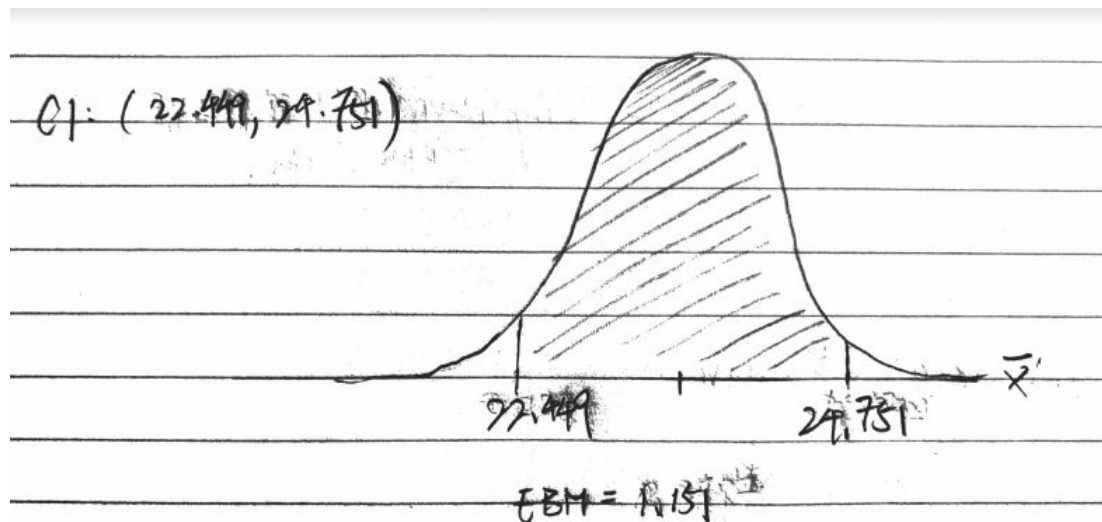 CI: (22.449, 24.751)
x̄
22.449
24.751
EBM = 1.151